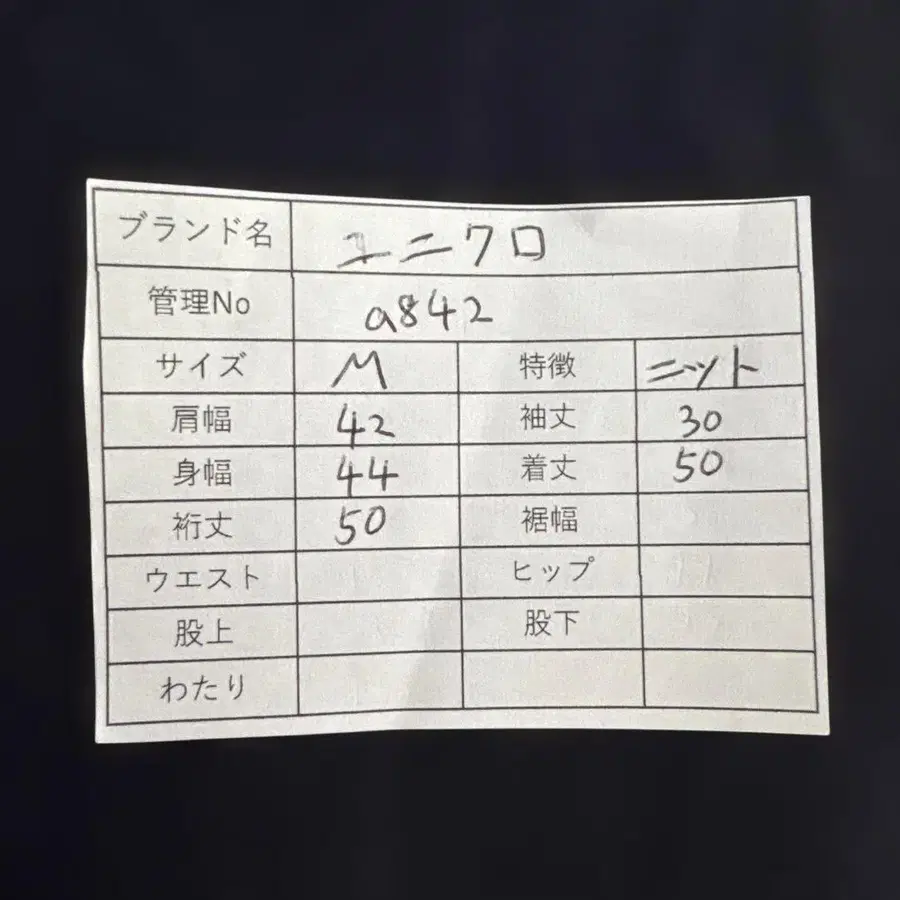 ブランド名 ユニクロ
管理No a842
サイズ M 特徴 ニット
肩幅 42 袖丈 30
身幅 44 着丈 50
裄丈 50 裾幅
ウエスト ヒップ
股上 股下
わたり